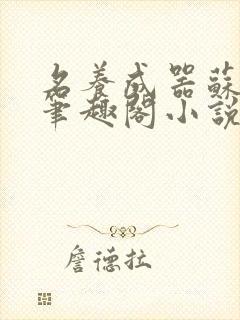 名養成器蘇
筆趣閣小說
詹德拉